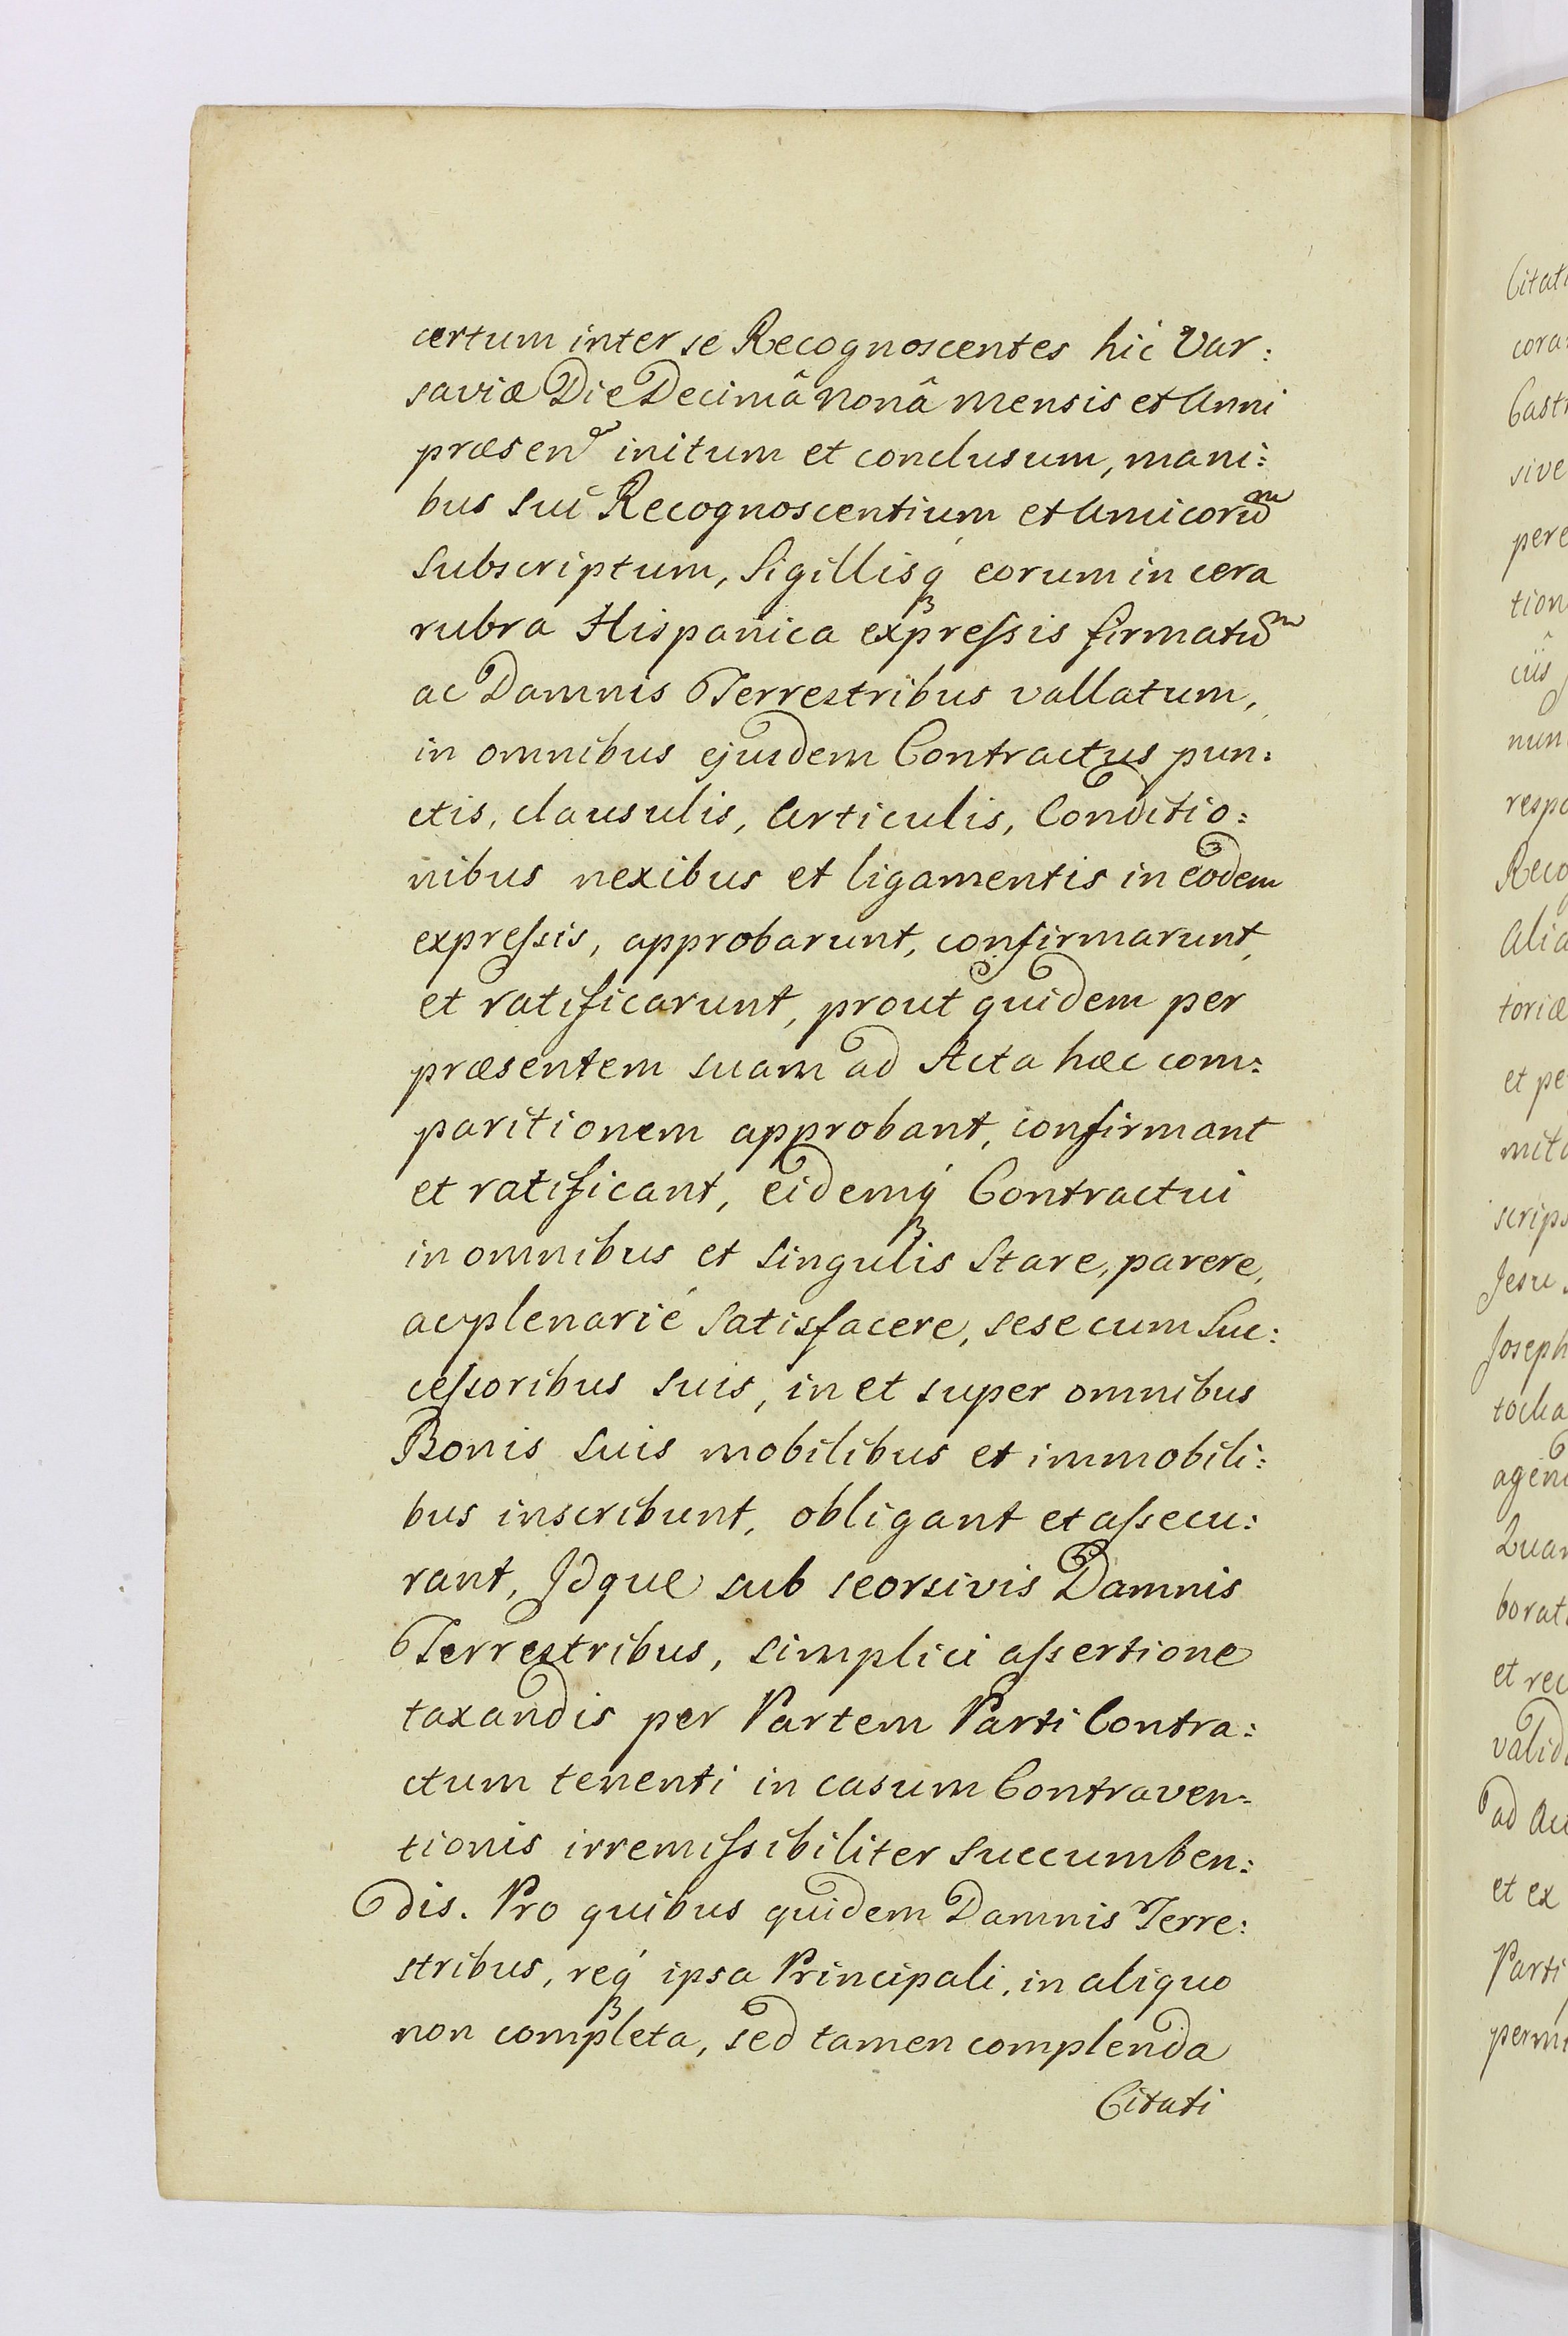 certum inter se Recognoscentes hic Var:
saviæ Die Decimâ nonâ mensis et Anni
præsen initum et conclusum, mani:
bus sui Recognoscentium et Amicorũ
subscriptum, Sigillisq́ eorum in cera
rubra Hispanica expreſsis firmatũ
ac Damnis Terrestribus vallatum,
in omnibus ejusdem Contractus pun:
ctis, clausulis, Articulis, Conditio:
nibus nexibus et ligamentis in eodem
expreſsis, approbarunt, confirmarunt,
et ratificarunt, prout quidem per
præsentem suam ad Acta hæc com:
paritionem approbant, confirmant
et ratificant, eidemq́ Contractui
in omnibus et singulis stare, parere,
ac plenarié satisfacere, sese cum Suc:
ceſsoribus suis, in et super omnibus
Bonis suis mobilibus et immobili:
bus inscribunt, obligant et aſsecu:
rant, Idque sub seorsivis Damnis
Terrestribus, simplici aſsertione
taxandis per Partem Parti Contra:
ctum tenenti in casum Contraven:
tionis irremiſsibiliter succumben:
dis. Pro quibus quidem Damnis Terre:
stribus, req́ ipsa Principali, in aliquo
non completa, sed tamen complenda
Citati
Citati
cora
Cast
sive
pere
tion
ciis
nun
resp
Reco
Alia
toriæ
et pe
mit
scrips
Jesu
Joseph
tocha
agen
Quar
borat
et rec
valid
ad Ac
et ex
Parti
permi